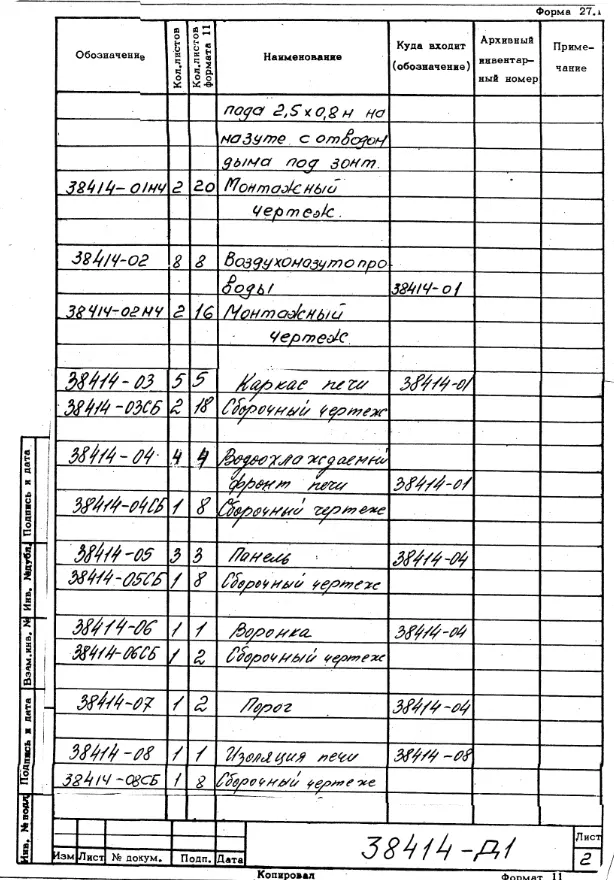 Форма 27.1
Обозначение
Кол.листов
Кол.листов формата 11
Наименование
Куда входит (обозначение)
Архивный инвентарный номер
Примечание
пода 2,5х0,8м на
мазуте с отводом
дыма под зонт.
38414-01МЧ 2 20 Монтажный
чертеж.
38414-02 8 8 Воздухомазутопро-
воды 38414-01
38414-02МЧ 2 16 Монтажный
чертеж.
38414-03 5 5 Каркас печи 38414-01
38414-03СБ 2 18 Сборочный чертеж
38414-04 4 4 Водоохлаждаемый
фронт печи 38414-01
38414-04СБ 1 8 Сборочный чертеж
38414-05 3 3 Панель 38414-04
38414-05СБ 1 8 Сборочный чертеж
38414-06 1 1 Воронка 38414-04
38414-06СБ 1 2 Сборочный чертеж
38414-07 1 2 Порог 38414-04
38414-08 1 1 Изоляция печи 38414-08
38414-08СБ 1 8 Сборочный чертеж
Подпись и дата
Инв. №дубл.
Взам.инв. №
Подпись и дата
Инв. № подл
38414-Д1
Лист
2
Изм Лист № докум. Подп. Дата
Копировал
Формат 11